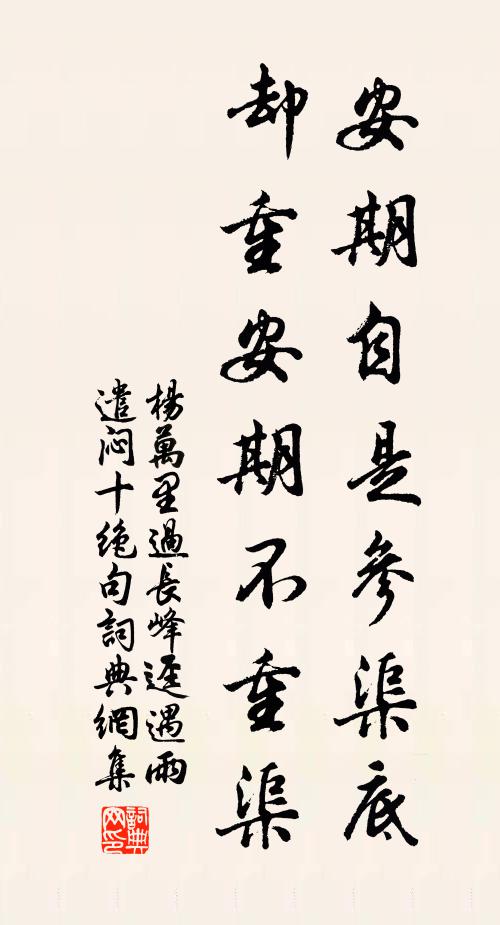 安期自是參渠底
却重安期不重渠
楊萬里過長峰逕遇雨
遣闷十絶句詞典網集
詞典网印